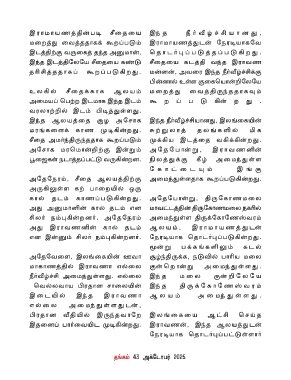 இராமாயணத்தின்படி சீதையை
மறைத்து வைத்ததாகக் கூறப்படும்
இடத்திற்கு வருகைத் தந்த அனுமான்,
இந்த இடத்திலேயே சீதையை கண்டு
தரிசித்ததாகக் கூறப்படுகிறது.
உலகில் சீதைக்காக ஆலயம்
அமையப் பெற்ற இடமாக இந்த இடம்
வரலாற்றில் இடம் பிடித்துள்ளது.
இந்த ஆலயத்தை சூழ அசோக
மரங்களைக் காண முடிகின்றது.
சீதை அமர்ந்திருந்ததாக கூறப்படும்
அசோக மரமொன்றிற்கு இன்றும்
பூஜைகள் நடாத்தப்பட்டு வருகின்றன.
அதேநேரம், சீதை ஆலயத்திற்கு
அருகிலுள்ள கற் பாறையில் ஒரு
கால் தடம் காணப்படுகின்றது.
அது அனுமானின் கால் தடம் என
சிலர் நம்புகின்றனர். அதேநேரம்
அது இராவணனின் கால் தடம்
என இன்னும் சிலர் நம்புகின்றனர்.
அதேவேளை, இலங்கையின் ஊவா
மாகாணத்தில் இராவணா எல்லை
நீர்வீழ்ச்சி அமைந்துள்ளது. எல்லை
வெல்லவாய பிரதான சாலையின்
இடையில் இந்த இராவணா
எல்லை அமைந்துள்ளதுடன்,
பிரதான வீதியில் இருந்தவாறே
இதனைப் பார்வையிட முடிகின்றது.
இந்த நீர்வீழ்ச்சியானது,
இராமாயணத்துடன் நேரடியாகவே
தொடர்புப்படுத்தப்படுகிறது.
சீதையை கடத்தி வந்த இராவண
மன்னன், அவரை இந்த நீர்வீழ்ச்சிக்கு
பின்னால் உள்ள குகையொன்றிலேயே
மறைத்து வைத்திருந்ததாகவும்
கூறப்படுகின்றது.
இந்த நீர்வீழ்ச்சியானது, இலங்கையின்
சுற்றுலாத் தலங்களில் மிக
முக்கிய இடத்தை வகிக்கின்றது.
அதேபோன்று, இராவணனின்
நிலத்துக்கு கீழ் அமைந்துள்ள
கோட்டையும் இங்கு
அமைந்துள்ளதாக கூறப்படுகின்றது.
அதேபோன்று, திருகோணமலை
மாவட்டத்தின் திருகோணமலை நகரில்
அமைந்துள்ள திருக்கோணேஸ்வரம்
ஆலயம், இராமாயணத்துடன்
நேரடியாக தொடர்புப்படுகின்றது.
மூன்று பக்கங்களிலும் கடல்
சூழ்ந்திருக்க, நடுவில் பாரிய மலை
குன்றொன்று அமைந்துள்ளது.
இந்த மலை குன்றிலேயே
இந்த திருக்கோணேஸ்வரம்
ஆலயம் அமைந்துள்ளது.
இலங்கையை ஆட்சி செய்த
இராவணன், இந்த ஆலயத்துடன்
நேரடியாக தொடர்புப்பட்டுள்ளார்
தங்கம் 43 ஆக்டோபர் 2025